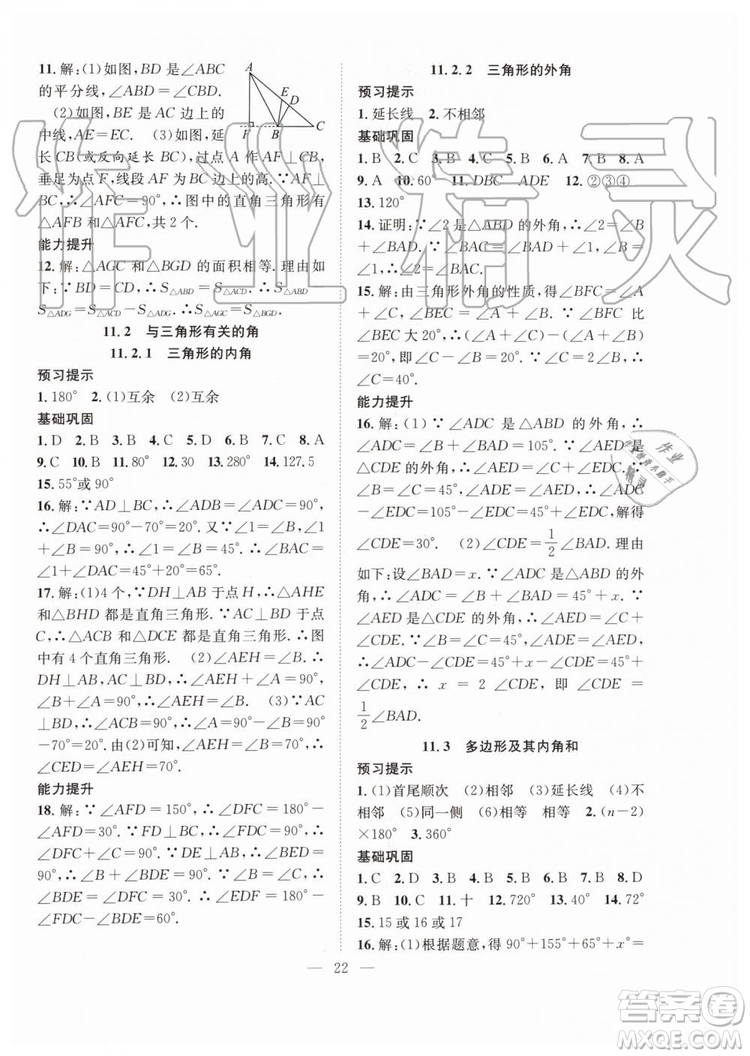 11. 解：(1)如图，BD是∠ABC
的平分线，∠ABD=∠CBD.
(2)如图，BE是AC边上的
中线，AE=EC. (3)如图，延
长CB(或反向延长BC)，过点A作AF⊥BC，
垂足为点F，线段AF即为BC边上的高. ∵AF⊥
BC，∴∠AFC=90°，∴图中的直角三角形有
△AFB和△AFC，共2个.
A
E
D
F B C
能力提升
12. 解：△AGC和△BGD的面积相等. 理由如
下：∵BD=CD，∴S△ABD=S△ACD，∴S△ABD-
S△ADG=S△ACD-S△ADG，∴S△AGC=S△BGD.
11.2 与三角形有关的角
11.2.1 三角形的内角
预习提示
1. 180° 2. (1)互余 (2)互余
基础巩固
1. D 2. B 3. B 4. B 5. D 6. B 7. B 8. A
9. C 10. B 11. 80° 12. 30 13. 280° 14. 127.5
15. 55°或90°
16. 解：∵AD⊥BC，∴∠ADB=∠ADC=90°，
∴∠DAC=90°-70°=20°. 又∵∠1=∠B，∠1
+∠B=90°，∴∠1=∠B=45°，∴∠BAC=∠1+
∠DAC=45°+20°=65°.
17. 解：(1)4个. ∵DH⊥AB于点H，∴△AHE
和△BHD都是直角三角形. ∵AC⊥BD于点C，
∴△ACB和△DCE都是直角三角形. ∴图
中有4个直角三角形. (2)∠AEH=∠B. ∵
DH⊥AB，AC⊥BD，∴∠AEH+∠A=90°，
∠B+∠A=90°，∴∠AEH=∠B. (3)∵AC⊥
BD，∴∠ACB=90°，∴∠B=90°-∠A=90°-
20°=70°. 由(2)可知，∠AEH=∠B=70°，∴
∠CED=∠AEH=70°.
能力提升
18. 解：∵∠AFD=150°，∴∠DFC=180°-
∠AFD=30°. ∵FD⊥BC，∴∠FDC=90°，
∴∠DFC+∠C=90°，∴∠C=90°-∠DFC=
60°，∴∠B=∠C=60°. ∵DE⊥AB，∴∠BED=
90°，∴∠BDE=30°，∴∠EDF=180°-90°
-∠BDE=60°.
11.2.2 三角形的外角
预习提示
1. 延长线 2. 不相邻
基础巩固
1. B 2. C 3. C 4. B 5. C 6. B 7. B 8. A
9. A 10. 60° 11. DBC ADE 12. ②③④
13. 120°
14. 证明：∵∠2是△ABD的外角，∴∠2=∠1
+∠BAD. ∵∠1=∠B，∴∠2=∠B+
∠BAD.
15. 解：由三角形外角的性质，得∠BEC=
∠A+∠ABE. ∵∠ABE=∠BFC比
∠BEC大20°，∴∠A+∠ABE+20°=∠BFC，
即∠BEC+20°=∠BFC，∴∠BEC+∠C，
∴∠C=40°.
能力提升
16. 解：(1)∵∠ADC是△ABD的外角，∴
∠ADC=∠B+∠BAD=105°. ∵∠AED是
△CDE的外角，∴∠AED=∠C+∠EDC. ∵
∠B=∠C，∠ADE=∠AED，∴∠ADC-
∠EDC=105°-∠EDC=45°+∠EDC，解得
∠CDE=30°. (2)∠CDE=1/2∠BAD. 理由
如下：设∠BAD=x. ∵∠ADC是△ABD的外
角，∴∠ADC=∠B+∠BAD=45°+x. ∵
∠AED是△CDE的外角，∴∠AED=∠C+
∠CDE. ∵∠B=∠C，∠ADE=∠AED，∴
∠ADC-∠CDE=45°+x-∠CDE=45°+
∠CDE，∴x=2∠CDE，即∠CDE=
1/2∠BAD.
11.3 多边形及其内角和
预习提示
1. (1)首尾顺次 (2)相邻 (3)延长线 (4)不
相邻 (5)同一侧 (6)相等 相等 2. (n-2)
×180° 3. 360°
基础巩固
1. C 2. D 3. A 4. B 5. B 6. C 7. A 8. C
9. B 10. C 11. 十 12. 720° 13. 40° 14. 72°
15. 15或16或17
16. 解：(1)根据题意，得90°+155°+65°+x°
— 22 —
作业精灵
作业
答案圈
MXQE.COM